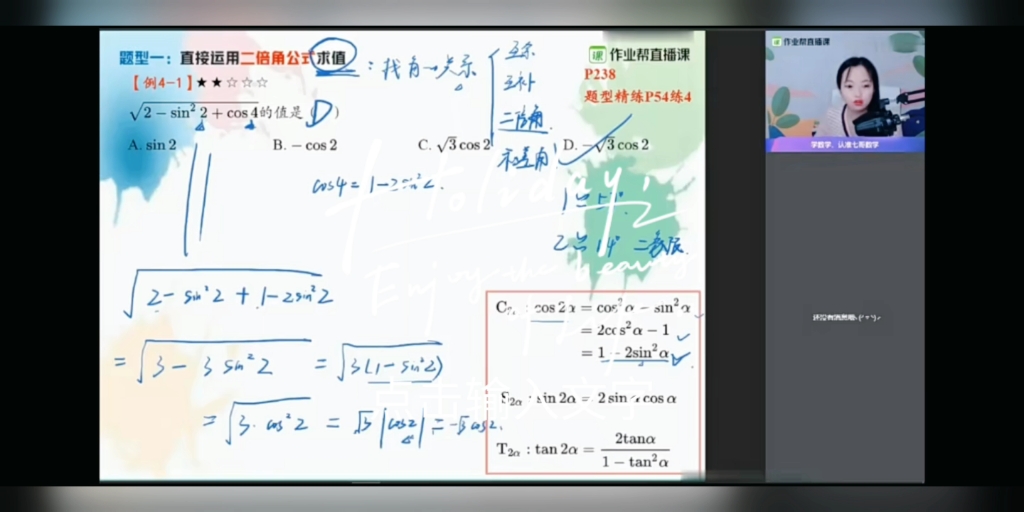 题型一：直接运用二倍角公式求值
：找角→关系
互余
互补
二倍角
和差角
作业帮直播课
P238
题型精练P54练4
【例4-1】★★☆☆☆
√(2 − sin² 2 + cos 4)的值是（D）
A. sin 2
B. − cos 2
C. √3 cos 2
D. −√3 cos 2
cos4 = 1−2sin²2.
√(2 − sin²2 + 1−2sin²2)
= √(3 − 3 sin²2) = √(3(1 − sin²2))
= √(3·cos²2) = √3 |cos2| = −√3 cos2.
: cos 2α = cos²α − sin²α
= 2cos²α − 1
= 1 − 2sin²α
S₂α : sin 2α = 2 sin α cos α
T₂α : tan 2α = 2tanα / (1 − tan²α)
holiday
Enjoy the
点击输入文字
作业帮直播课
学数学，认准七哥数学